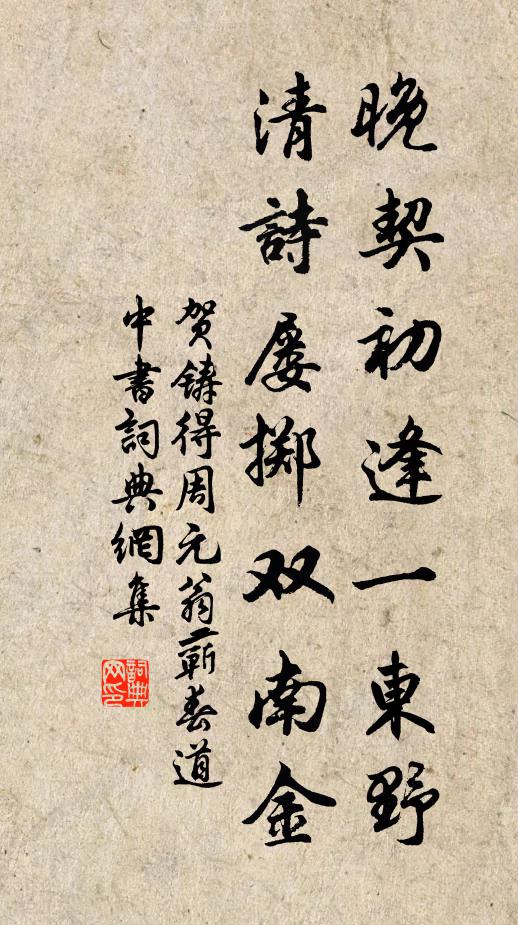 晚契初逢一東野
清詩屡掷双南金
贺鑄得周元翁蕲春道
中書詞典網集
詞典网印